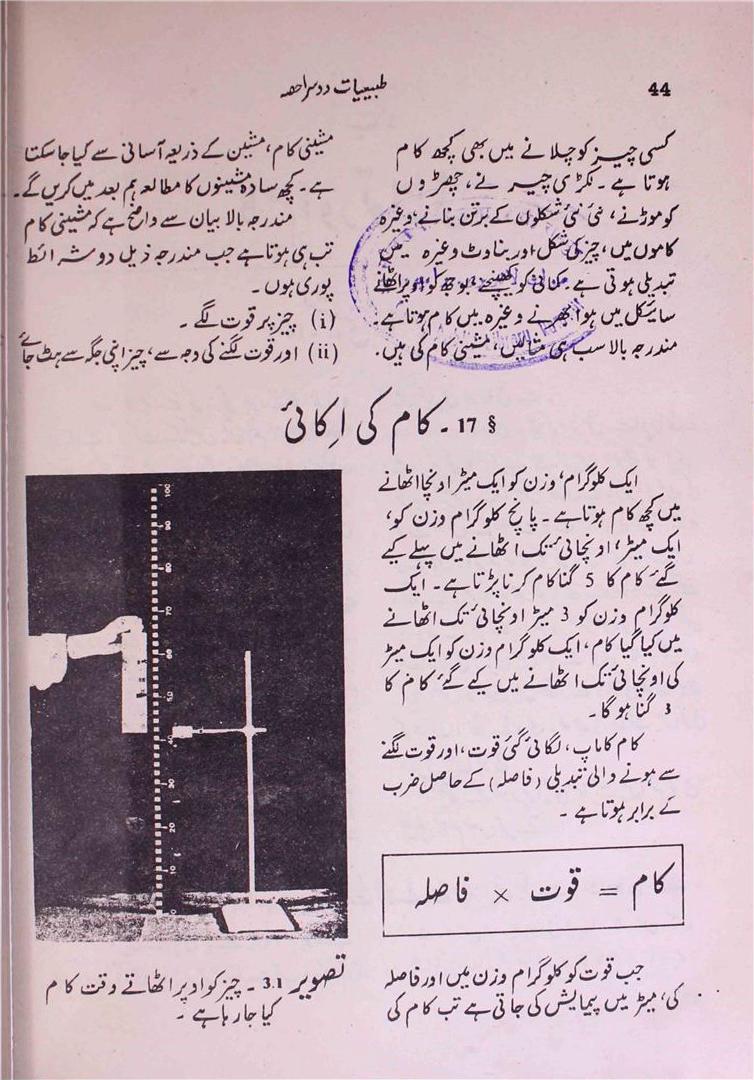 44
طبیعیات دوسرا حصہ
کسی چیز کو چلانے میں بھی کچھ کام
ہوتا ہے۔ لکڑی چیر نے، چھڑوں
کو موڑنے، نئی نئی شکلوں کے برتن بنانے وغیرہ
کاموں میں، چیز کی شکل اور بناوٹ وغیرہ میں
تبدیلی ہوتی ہے کمانی کو کھینچنے، بوجھ کو اوپر اٹھانے
سائیکل میں ہوا بھرنے وغیرہ میں کام ہوتا ہے۔
مندرجہ بالا سب ہی مثالیں، مشینی کام کی ہیں۔
مشینی کام، مشین کے ذریعہ آسانی سے کیا جا سکتا
ہے۔ کچھ سادہ مشینوں کا مطالعہ ہم بعد میں کریں گے۔
مندرجہ بالا بیان سے واضح ہے کہ مشینی کام
تب ہی ہوتا ہے جب مندرجہ ذیل دو شرائط
پوری ہوں۔
(i) چیز پر قوت لگے۔
(ii) اور قوت لگنے کی وجہ سے، چیز اپنی جگہ سے ہٹ جائے
§ 17 ۔ کام کی اِکائی
ایک کلوگرام، وزن کو ایک میٹر اونچا اٹھانے
میں کچھ کام ہوتا ہے۔ پانچ کلوگرام وزن کو،
ایک میٹر، اونچائی تک اٹھانے میں پہلے کیے
گئے کام کا 5 گنا کام کرنا پڑتا ہے۔ ایک
کلوگرام وزن کو 3 میٹر اونچائی تک اٹھانے
میں کیا گیا کام، ایک کلوگرام وزن کو ایک میٹر
کی اونچائی تک اٹھانے میں کیے گئے کام کا
3 گنا ہوگا۔
کام کا ماپ، لگائی گئی قوت، اور قوت لگنے
سے ہونے والی تبدیلی (فاصلہ) کے حاصل ضرب
کے برابر ہوتا ہے۔
کام = قوت × فاصلہ
جب قوت کو کلوگرام وزن میں اور فاصلہ
کی، میٹر میں پیمایش کی جاتی ہے تب کام کی
100
90
80
70
60
50
40
30
20
10
0
تصویر 3.1 ۔ چیز کو اوپر اٹھاتے وقت کام
کیا جا رہا ہے۔